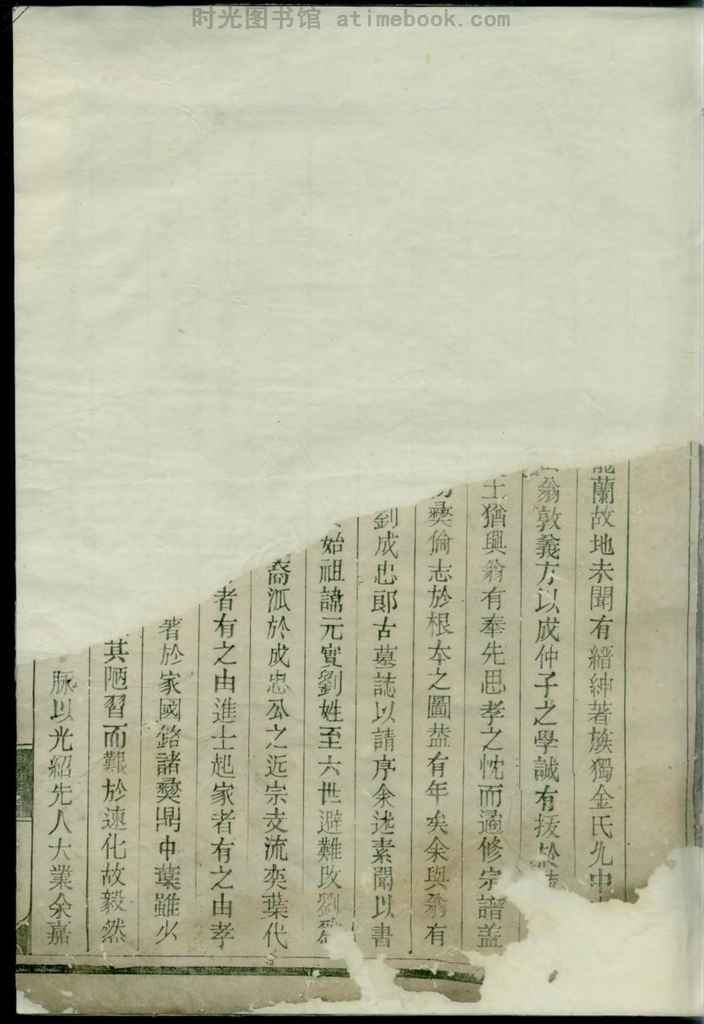 时光图书馆 atimebook.com
蘭故地未聞有縉紳著族獨金氏允中
翁敦義方以成仲子之學誠有拔
士猶興翁有奉先思孝之忱而遹修宗譜蓋
彛倫志於根本之圖葢有年矣余與翁有
劉成忠郎古墓誌以請序余述素聞以書
始祖諱元實劉姓至六世避難改劉
裔派於成忠公之远宗支流奕葉代
者有之由進士起家者有之由孝
著於家國銘諸彛鼎中葉雖少
其陋習而難於速化故毅然
脉以光紹先人大業余嘉